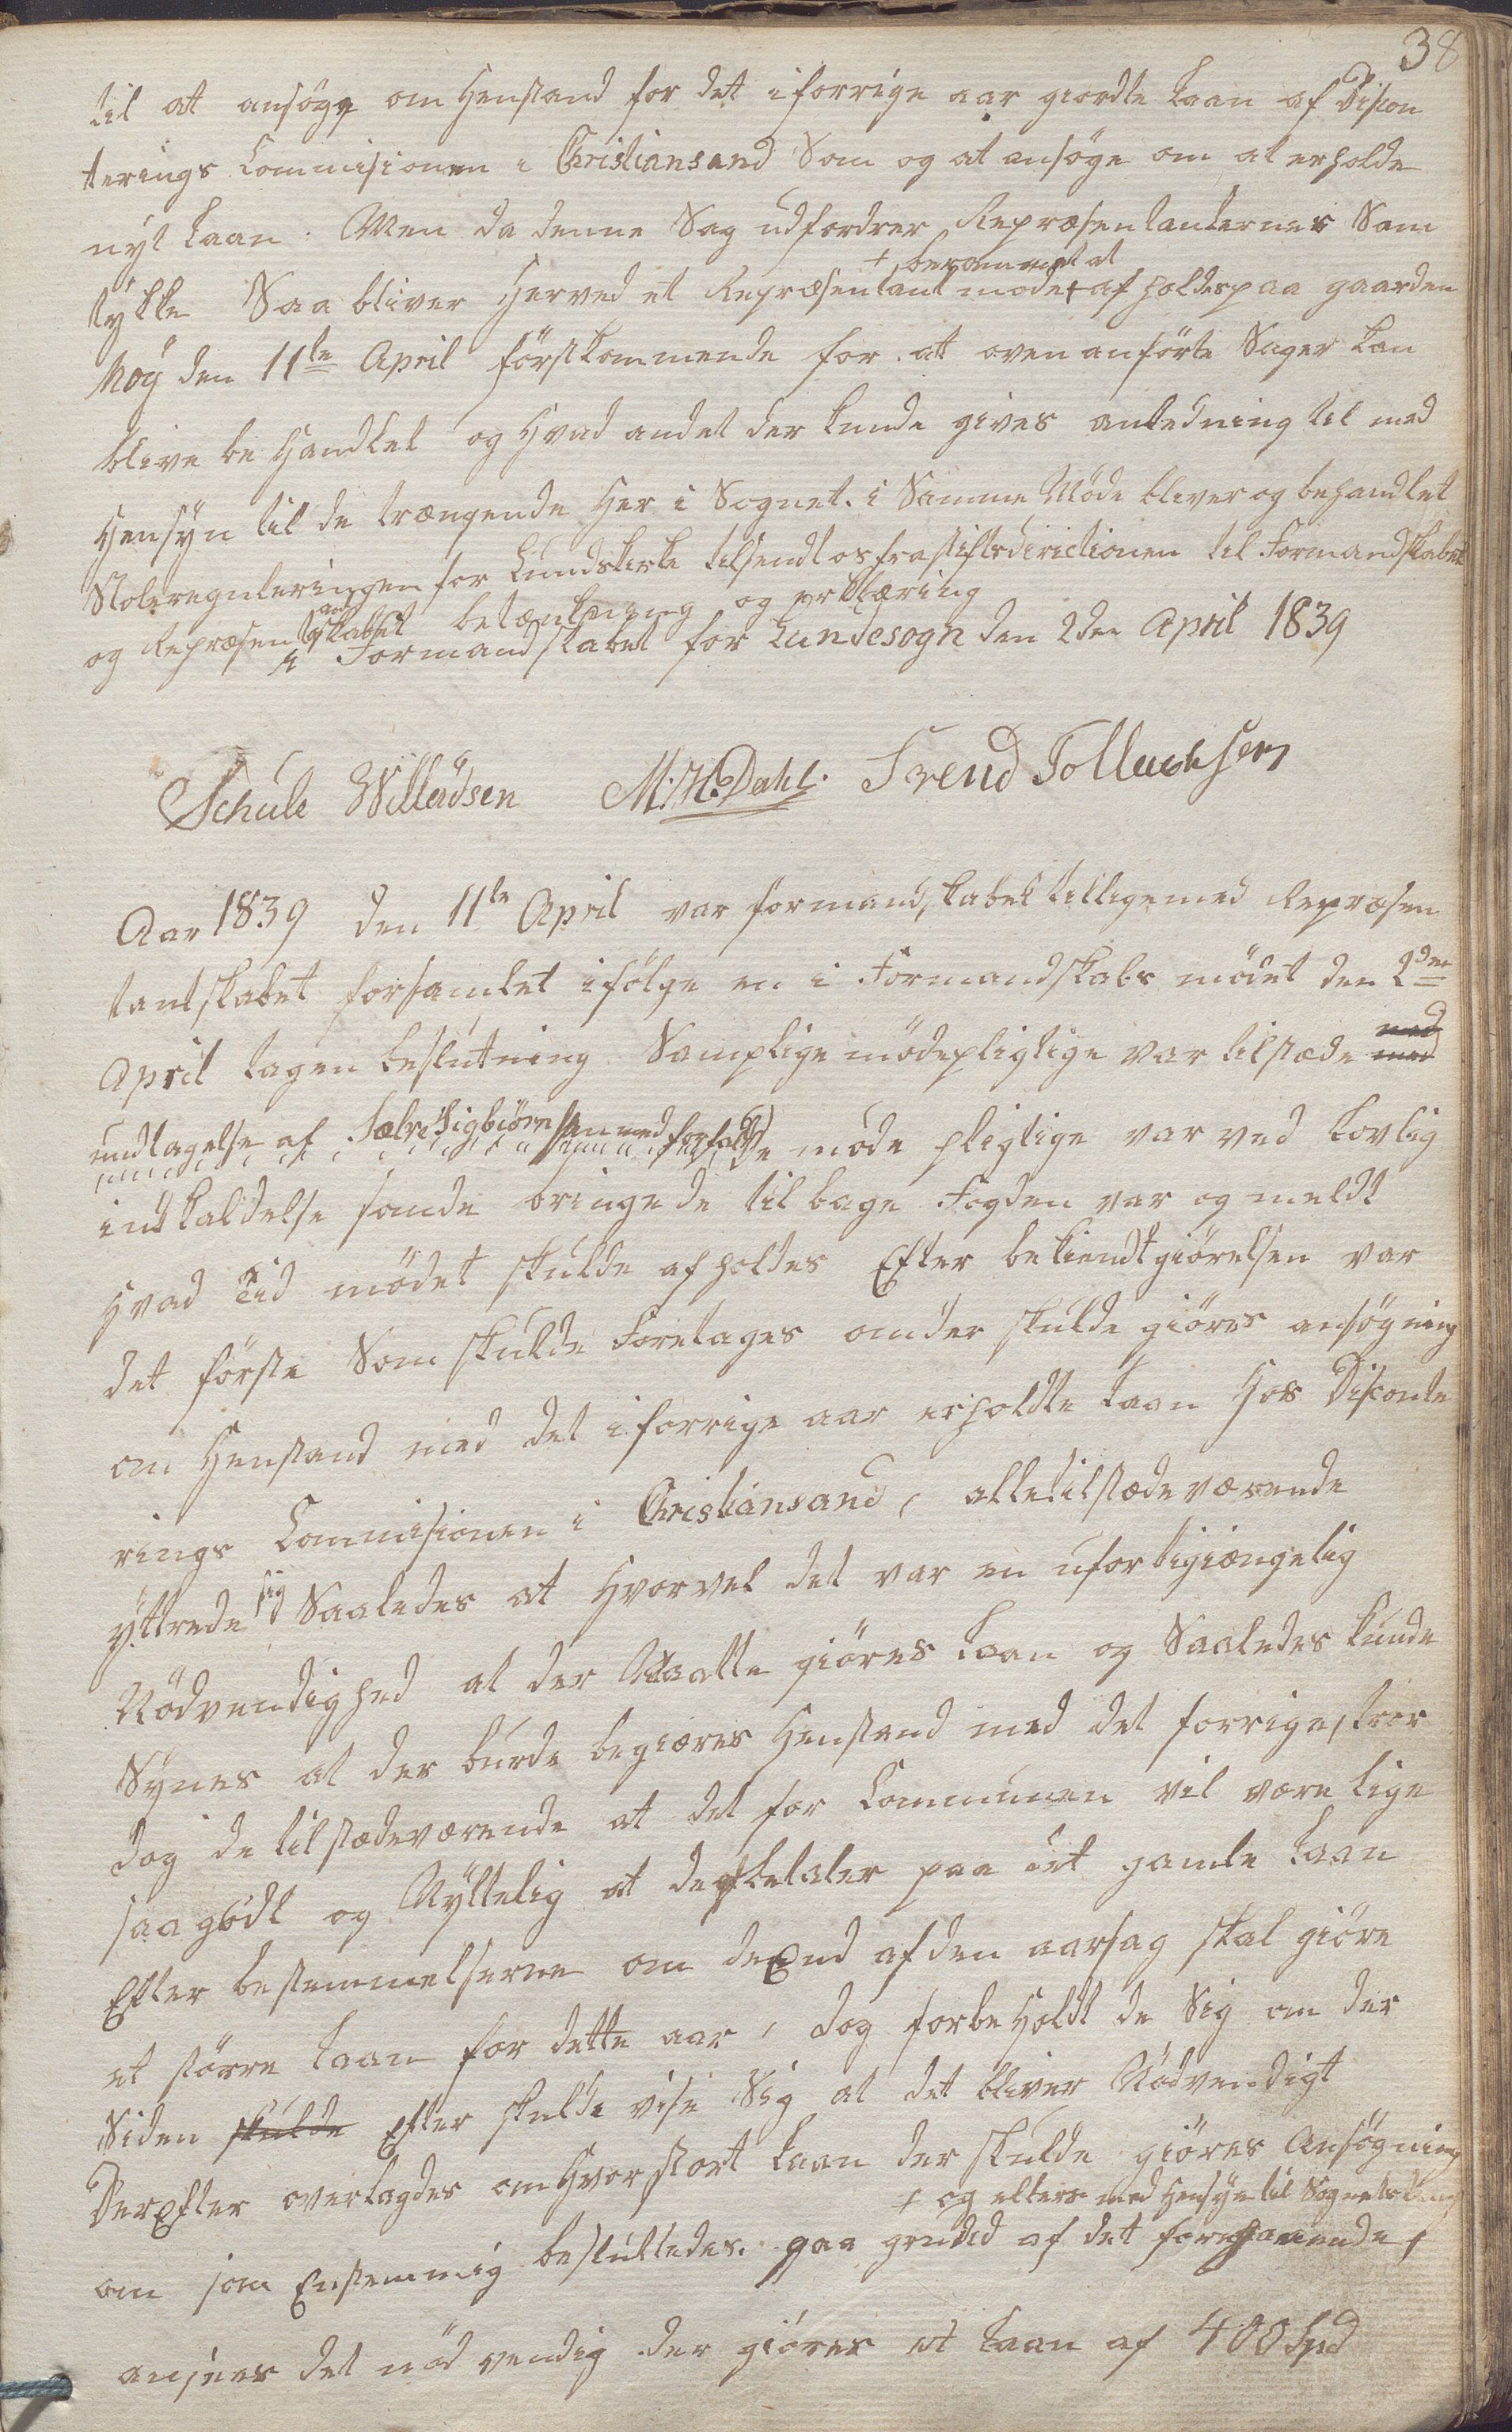 38
til at ansöge om Henstand for det iforrige aar giordte Laan af Discon
terings Commisionen i Christiansand Som og at ansöge om at erholde
nyt Laan. Men da denne Sag udfordrer Repræsentanternes Sam
+ berammet at
tykke Saa bliver Herved et Repræsentant mode + afholdes paa gaarden
Möy den 11te April förstkommende for at ovenanförte Sager kan
blive be Handlet og Hvad andet der kunde gives anledning til med
Hensyn til de trængende Her i Sognet. i Samme Möde bliver og behandlet
Skolereguleringen for Lundskirke tilsendt os fra stiftsdirictionen til Formandskabet
og Repræsentantskabet betænkning og erklæring
i Formandskabet for Lundesogn den 2den April 1839
Schule Willadsen M. H. Dahl. Trend Tollachsen
Aar 1839 den 11te April var formandskabet tilligemed Repræsen
tantskabet forsamlet ifölge en i Formandskabs mödet den 2den
April tagen beslutning Samtlige mödepligtige var tilstæde med
undtagelse af Salve Sigbiörnsen med forfald de möde pligtige var ved Lovlig
indkaldelse somde bringede tilbage Fogden var og meldt
Hvad Tid mödet skulde afholdes Efter bekiendtgiörelsen var
det förste Som skulde Foretages om der skulde giöres ansögning
om Henstand med det iforrige aar erholdte Laan Hos Disconte
rings Commisionen i Christiansand, alle tilstædeværende
yttrede sig Saaledes at Hvorvel det var en uforbigiængelig
Nödvendighed at der Maatte giöres Laan og Saaledes kunde
Synes at der burde begiæres Henstand med det forrige, troer
dog de tilstædeværende at det for Communen vil være lige
saa godt og Nyttelig at de betaler paa det gamle Laan
Efter bestemmelserne om de End af den aarsag skal giöre
et större Laan for dette aar, dog forbeholdt de Sig om der
Siden skulde Efter skulde vise Sig at det bliver Nödvendigt
Derefter overlagdes om Hvor stort Laan der skulde giöres Ansögning
+ og ellers med Hensyn til Sognets
om som Enstemmig besluttedes. paa grund af det foregaaende +
ansees det nödvendig der giöres et Laan af 400 Spd